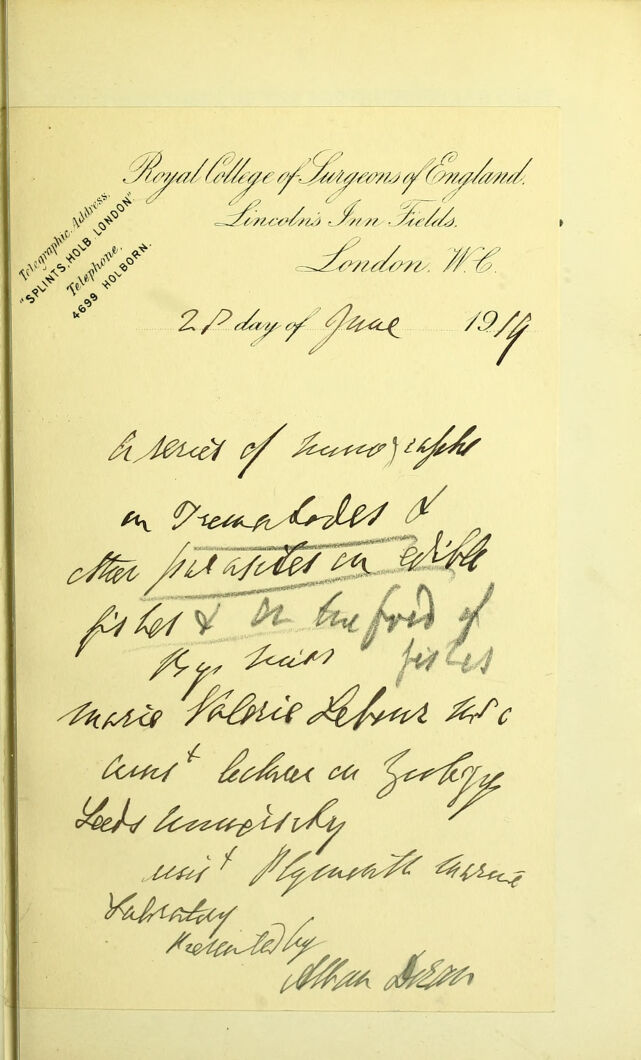 Royal College of Surgeons of England.
Lincoln's Inn Fields.
London. W.C.
Telegraphic Address.
"SPLINTS, HOLB. LONDON"
Telephone.
4699 HOLBORN.
28 day of June 1919
A series of monographs
on Trematodes &
other parasites on edible
fishes & on the food of
fishes
By Miss
Marie Valerie Lebour
assist lecturer on Zoology
Leeds University
assist Plymouth Marine
Laboratory
Presented by
Alban Doran